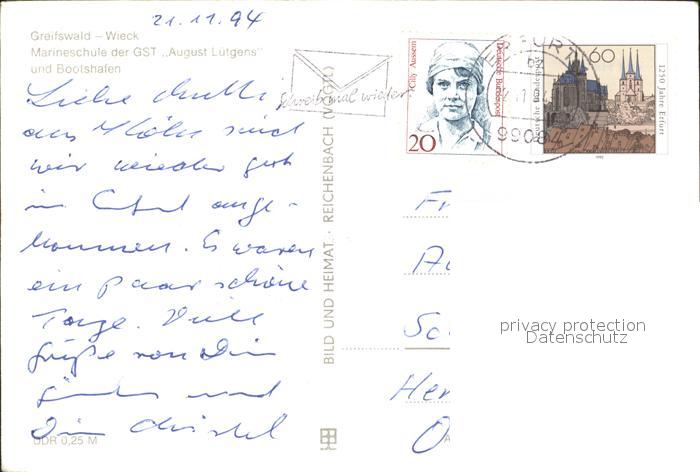 21.11.94
Greifswald – Wieck
Marineschule der GST „August Lütgens"
und Bootshafen
Liebe Mutti,
aus Köln sind
wir wieder gut
in Erfurt ange-
kommen. Es waren
ein paar schöne
Tage. Viele
Grüße von Dein
und
Dein Christel
DDR 0,25 M
BILD UND HEIMAT · REICHENBACH (VOGTL)
Schreib mal wieder
Cilly Aussem
Deutsche Bundespost
20
ERFURT
99084
60
Deutsche Bundespost
1250 Jahre Erfurt
1992
Fr
Au
Sc
Her
O
privacy protection
Datenschutz